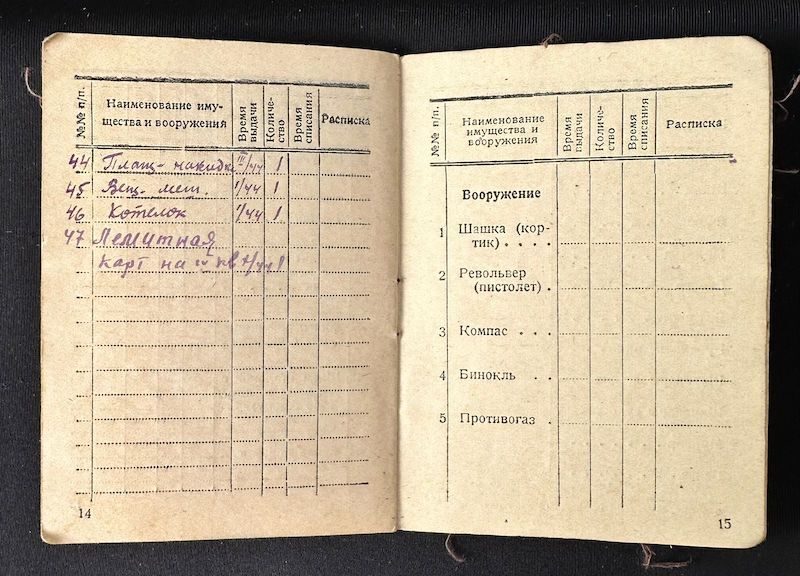 №№ п/п.
Наименование иму-
щества и вооружения
Время
выдачи
Количе-
ство
Время
списания
Расписка
44 Плащ-накидка III/44 1
45 Вещ-меш. 1/44 1
46 Котелок 1/44 1
47 Лемитная
карт на IV кв /44 1
14
№№ п/п.
Наименование
имущества и
вооружения
Время
выдачи
Количе-
ство
Время
списания
Расписка
Вооружение
1 Шашка (кор-
тик) . . . .
2 Револьвер
(пистолет) .
3 Компас . . .
4 Бинокль . .
5 Противогаз .
15